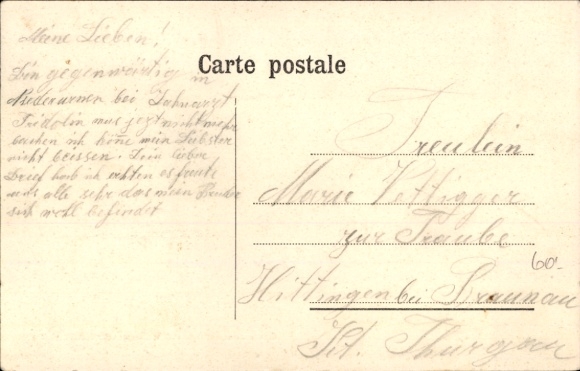 Meine Lieben!
Bin gegenwärtig in
Niederurnen bei Zahnarzt
Fridolin mus jezt nicht mehr
sachen ich köne mein Liebster
nicht beissen. Dein lieben
Brief hab ich erhten es freute
uns alle sehr das mein Bruder
sich wohl befindet
Carte postale
Freulein
Marie Vettigger
zur Traube
Hittingen bei Braunau
Kt. Thurgau
60.-